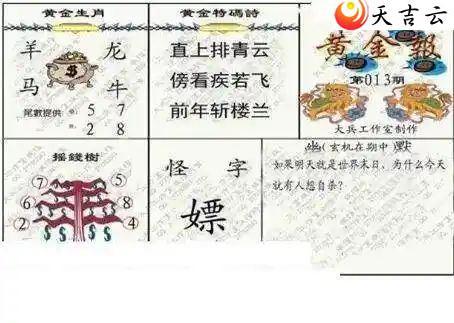 黄金生肖
羊 龙
马 牛
$
尾數提供 5 7
2 8
黄金特碼詩
直上排青云
傍看疾若飞
前年斩楼兰
天吉云
黄金報
第013期
大兵工作室制作
摇錢樹
⑦ ⑤
② ⑧
① ④
$ $ $ $
怪 字
嫖
幽(玄机在期中)默
如果明天就是世界末日，为什么今天
就有人想自杀？